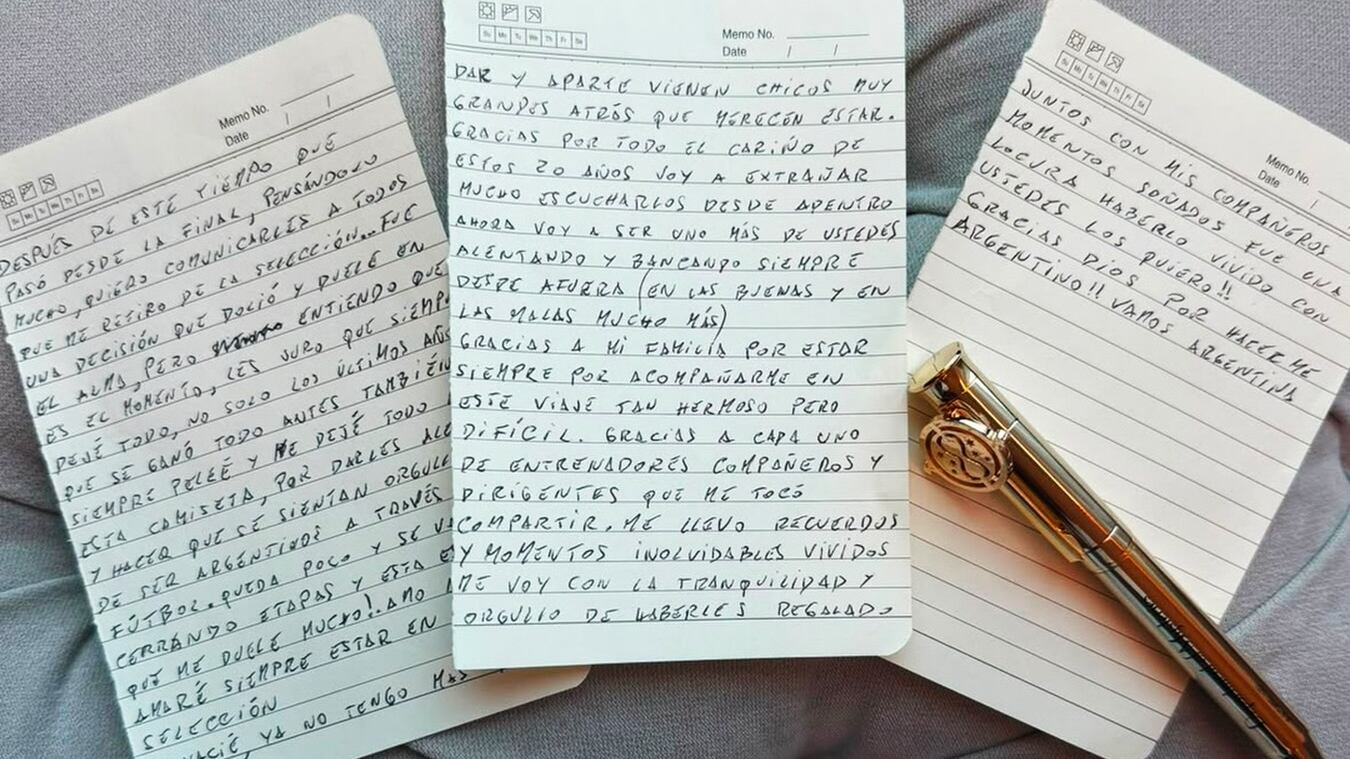 Memo No.
Date / /
Su Mo Tu We Th Fr Sa
DESPUÉS DE ESTE TIEMPO QUE
PASÓ DESDE LA FINAL, PENSÁNDOLO
MUCHO, QUIERO COMUNICARLES A TODOS
QUE ME RETIRO DE LA SELECCIÓN... FUE
UNA DECISIÓN QUE DOLIÓ Y DUELE EN
EL ALMA, PERO ENTIENDO QUE
ES EL MOMENTO, LES JURO QUE SIEMP
DEJÉ TODO, NO SOLO LOS ÚLTIMOS AÑOS
QUE SE GANÓ TODO ANTES TAMBIÉN
SIEMPRE PELEÉ Y ME DEJÉ TODO
ESTA CAMISETA, POR DARLES ALE
Y HACER QUE SE SIENTAN ORGULL
DE SER ARGENTINOS A TRAVÉS
FÚTBOL. QUEDA POCO Y SE VA
CERRÁNDO ETAPAS Y ESTA E
QUE ME DUELE MUCHO! AMO
AMARÉ SIEMPRE ESTAR EN
SELECCIÓN
VACIÉ, YA NO TENGO MAS
Memo No.
Date / /
Su Mo Tu We Th Fr Sa
DAR Y APARTE VIENEN CHICOS MUY
GRANDES ATRÁS QUE MERECEN ESTAR.
GRACIAS POR TODO EL CARIÑO DE
ESTOS 20 AÑOS VOY A EXTRAÑAR
MUCHO ESCUCHARLOS DESDE ADENTRO
AHORA VOY A SER UNO MÁS DE USTEDES
ALENTANDO Y BANCANDO SIEMPRE
DESDE AFUERA (EN LAS BUENAS Y EN
LAS MALAS MUCHO MÁS)
GRACIAS A MI FAMILIA POR ESTAR
SIEMPRE POR ACOMPAÑARME EN
ESTE VIAJE TAN HERMOSO PERO
DIFÍCIL. GRACIAS A CADA UNO
DE ENTRENADORES COMPAÑEROS Y
DIRIGENTES QUE ME TOCÓ
COMPARTIR. ME LLEVO RECUERDOS
Y MOMENTOS INOLVIDABLES VIVIDOS
ME VOY CON LA TRANQUILIDAD Y
ORGULLO DE HABERLES REGALADO
Memo No.
Date /
Su Mo Tu We Th Fr Sa
JUNTOS CON MIS COMPAÑEROS
MOMENTOS SOÑADOS FUE UNA
LOCURA HABERLO VIVIDO CON
USTEDES LOS QUIERO!!
GRACIAS DIOS POR HACERME
ARGENTINO!! VAMOS
ARGENTINA